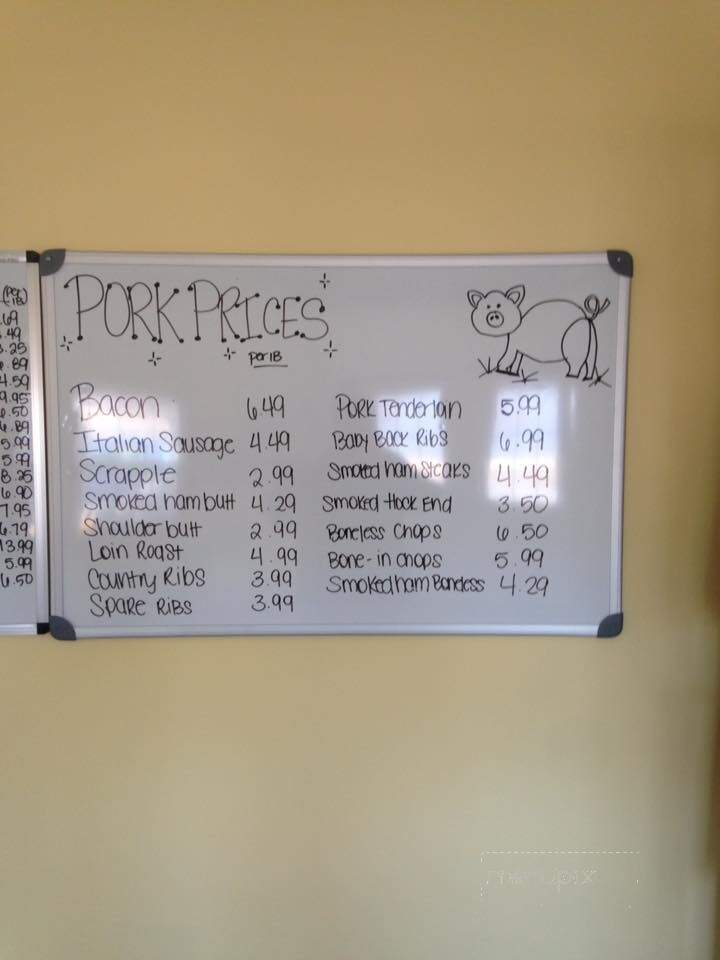 (per
lb)
.69
.49
3.25
.89
4.59
9.95
6.50
6.89
5.99
5.99
8.25
6.90
7.95
6.79
13.99
5.99
6.50
PORK PRICES
per lB
Bacon 6.49
Italian Sausage 4.49
Scrapple 2.99
Smoked ham butt 4.29
Shoulder butt 2.99
Loin Roast 4.99
Country Ribs 3.99
Spare Ribs 3.99
Pork Tenderloin 5.99
Baby Back Ribs 6.99
Smoked ham Steaks 4.49
Smoked Hock End 3.50
Boneless Chops 6.50
Bone-in chops 5.99
Smoked ham Boneless 4.29